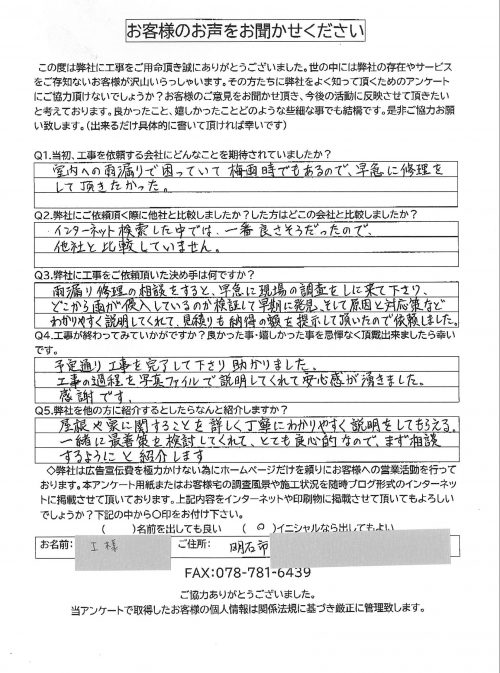 お客様のお声をお聞かせください
この度は弊社に工事をご用命頂き誠にありがとうございました。世の中には弊社の存在やサービス
をご存知ないお客様が沢山いらっしゃいます。その方たちに弊社をよく知って頂くためのアンケート
にご協力頂けないでしょうか？お客様のご意見をお聞かせ頂き、今後の活動に反映させて頂きたい
と考えております。良かったこと、嬉しかったことどのような些細な事でも結構です。是非ご協力お願
い致します。(出来るだけ具体的に書いて頂ければ幸いです)
Q1.当初、工事を依頼する会社にどんなことを期待されていましたか？
室内への雨漏りで困っていて梅雨時でもあるので、早急に修理を
して頂きたかった。
Q2.弊社にご依頼頂く際に他社と比較しましたか？した方はどこの会社と比較しましたか？
インターネット検索した中では、一番良さそうだったので、
他社と比較していません。
Q3.弊社に工事をご依頼頂いた決め手は何ですか？
雨漏り修理の相談をすると、早急に現場の調査をしに来て下さり、
どこから雨が侵入しているのか検証して早期に発見、そして原因と対応策など
わかりやすく説明してくれて、見積りも納得の額を提示して頂いたので依頼しました。
Q4.工事が終わってみていかがですか？良かった事・嬉しかった事を忌憚なく頂戴出来ましたら幸い
です。
予定通り工事を完了して下さり助かりました。
工事の過程を写真ファイルで説明してくれて安心感が湧きました。
感謝です。
Q5.弊社を他の方に紹介するとしたらなんと紹介しますか？
屋根や家に関することを詳しく丁寧にわかりやすく説明をしてもらえる。
一緒に最善策を検討してくれて、とても良心的なので、まず相談
するようにと紹介します
◇弊社は広告宣伝費を極力かけない為にホームページだけを頼りにお客様への営業活動を行って
おります。本アンケート用紙またはお客様宅の調査風景や施工状況を随時ブログ形式のインターネッ
トに掲載させて頂いております。上記内容をインターネットや印刷物に掲載させて頂いてもよろしい
でしょうか？下記の中から〇印をお付け下さい。
(　　)名前を出しても良い　(　○　)イニシャルなら出してもよい
お名前： I 様　ご住所： 明石市
FAX:078-781-6439
ご協力ありがとうございました。
当アンケートで取得したお客様の個人情報は関係法規に基づき厳正に管理致します。